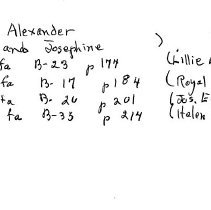 Alexander
and Josephine )
fa B-23 p 177 Lillie
fa B-17 p 184 ( Royal
fa B-26 p 201 ( Jos. E
fa B-33 p 214 ( Helen